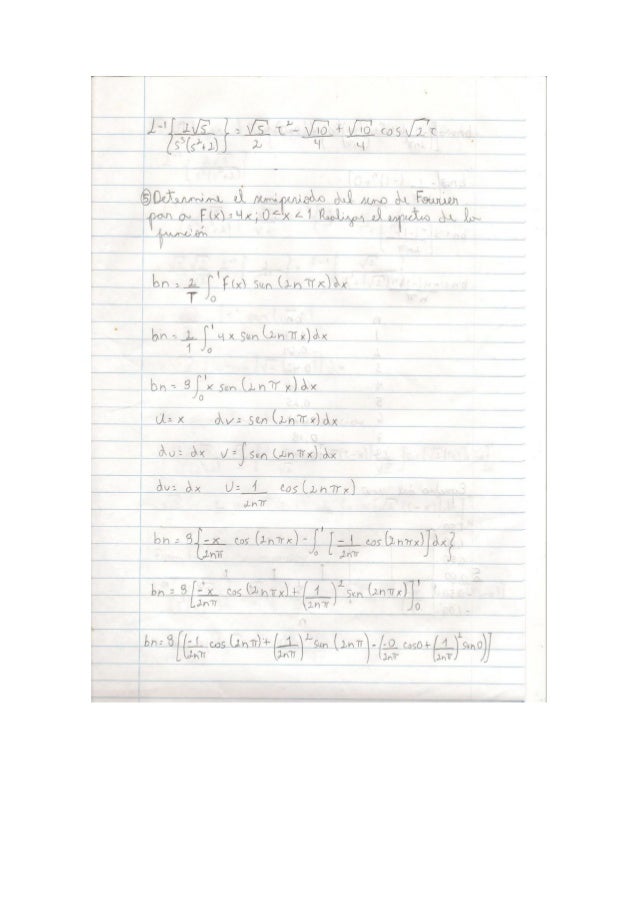 L⁻¹{2√5 / s³(s²+2)} = √5/2 τ² - √10/4 + √10/4 cos √2 τ
⑤ Determine el semiperiodo del seno de Fourier
para F(x)=4x; 0<x<1 Realizar el espectro de la
función
bn = 2/T ∫₀¹ F(x) sen (2nπx)dx
bn = 2/1 ∫₀¹ 4x sen (2nπx)dx
bn = 8∫₀¹ x sen (2nπx)dx
u=x dv= sen(2nπx)dx
du= dx v=∫sen(2nπx)dx
du= dx v= 1/2nπ cos(2nπx)
bn = 8{-x/2nπ cos (2nπx) - ∫₀¹ [-1/2nπ cos(2nπx)]dx}
bn = 8[-x/2nπ cos (2nπx) + (1/2nπ)² sen (2nπx)]₀¹
bn=8[(-1/2nπ cos(2nπ) + (1/2nπ)² sen (2nπ) - (-0/2nπ cos0 + (1/2nπ)² sen0)]